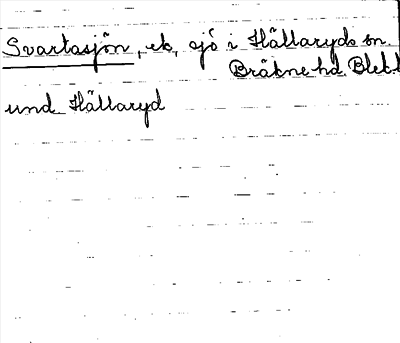 Svartasjön, ek, sjö i Hällaryds sn.
Bräkne hd Blek.l
und Hällaryd